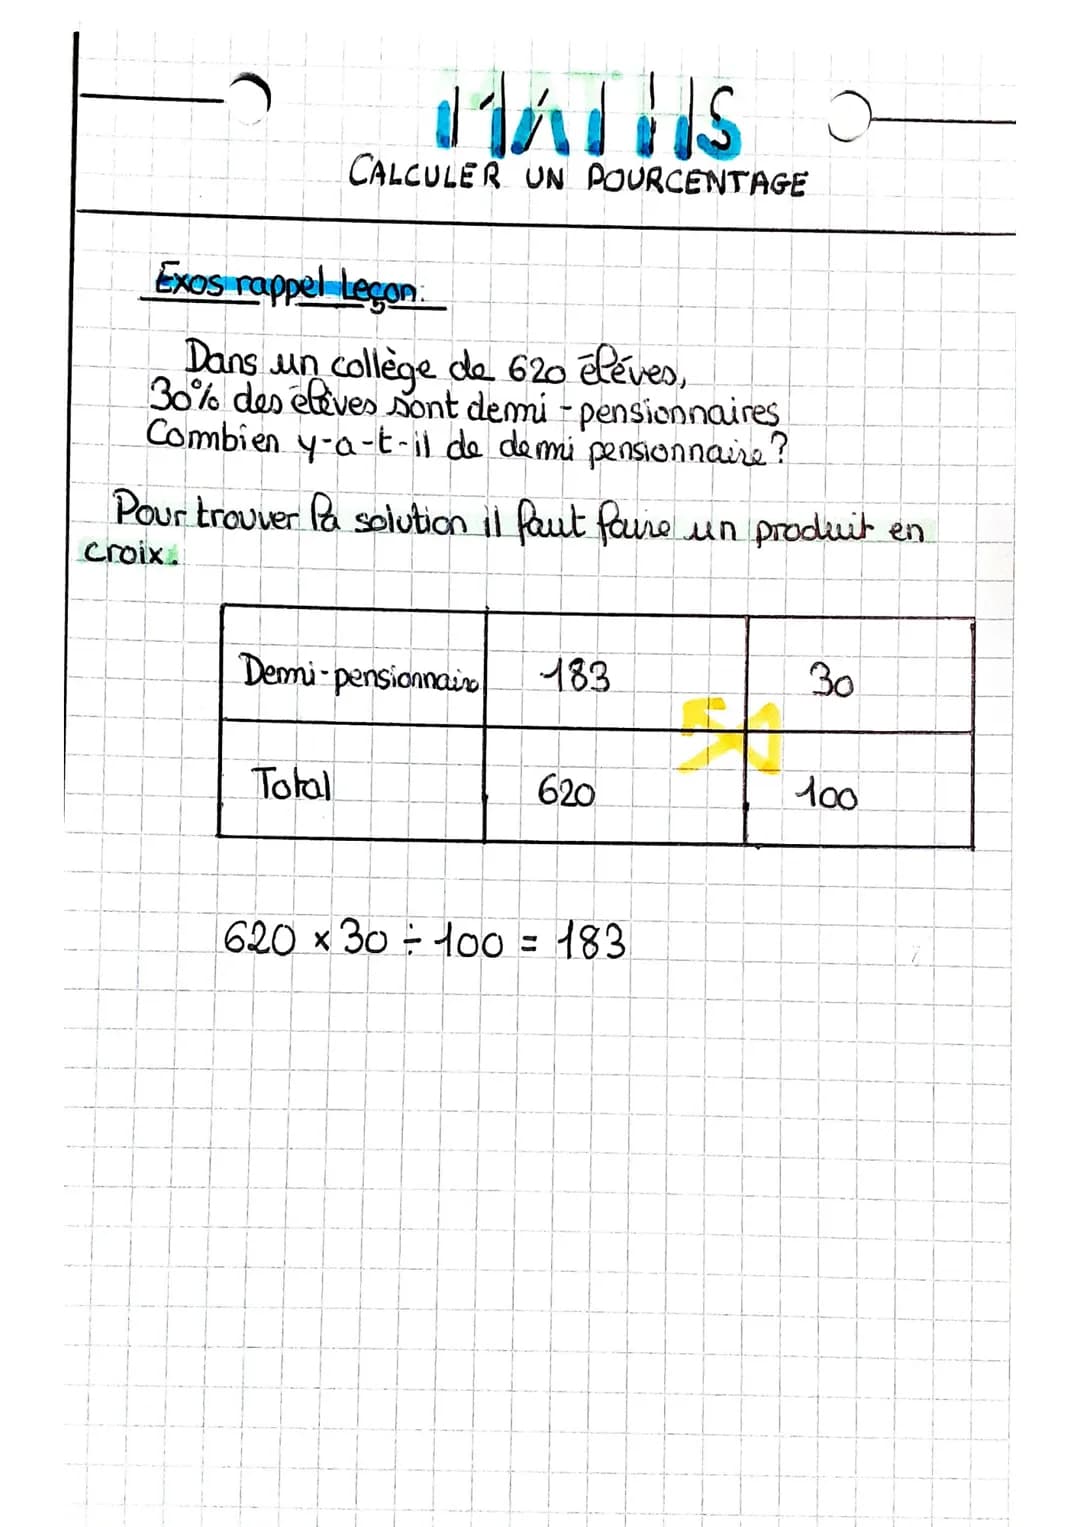 MATHS
CALCULER UN POURCENTAGE
Exos rappel Leçon:
Dans un collège de 620 éléves,
30% des élèves sont demi-pensionnaires
Combien y-a-t-il de demi pensionnaire?
Pour trouver la solution il faut faire un produit en
croix.
Demi-pensionnaire 183 30
Total 620 100
620 × 30 ÷ 100 = 183